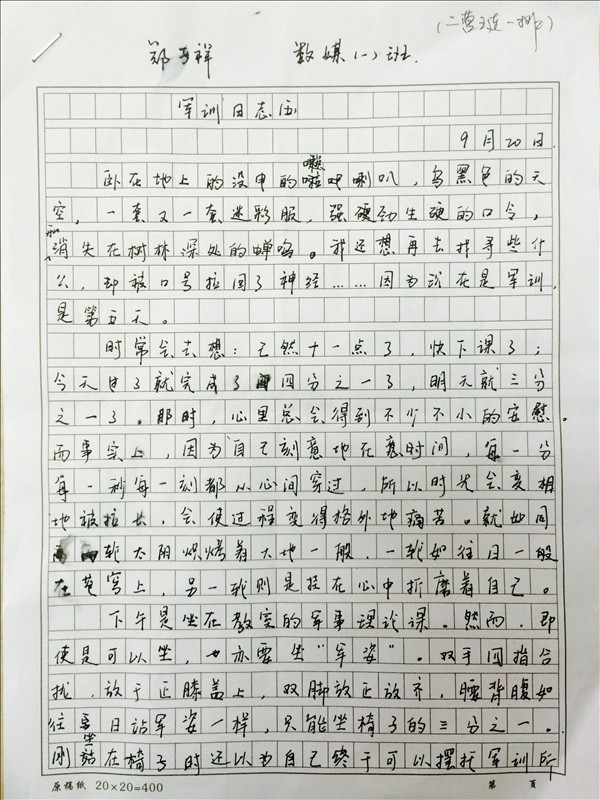 (二营五连一排)
郑 祥 数媒(一)班.
军训日志伍
9月20日.
卧在地上的没电的喇叭喇叭,乌黑色的天
空,一套又一套迷彩服,强硬劲生硬的口令,
和消失在树林深处的蝉鸣。我还想再去找寻些什
么,却被口号拉回了神经……因为现在是军训
是第五天。
时常会去想:已然十一点了,快下课了;
今天过了就完成了四分之一了,明天就三分
之一了。那时,心里总会得到不少不小的安慰。
而事实上,因为自己刻意地在意时间,每一分
每一秒每一刻都从心间穿过,所以时光会变相
地被拉长,会使过程变得格外地痛苦。就如同
两轮太阳炽烤着大地一般,一轮如往日一般
在苍穹上,另一轮则是挂在心中折磨着自己。
下午是坐在教室的军事理论课。然而,即
使是可以坐,也亦要坐“军姿”。双手四指合
拢,放于正膝盖上,双脚放正放齐,腰背腹如
往日站军姿一样,只能坐椅子的三分之一。
刚坐在椅子时还以为自己终于可以摆托军训所
原稿纸 20×20=400 第 页